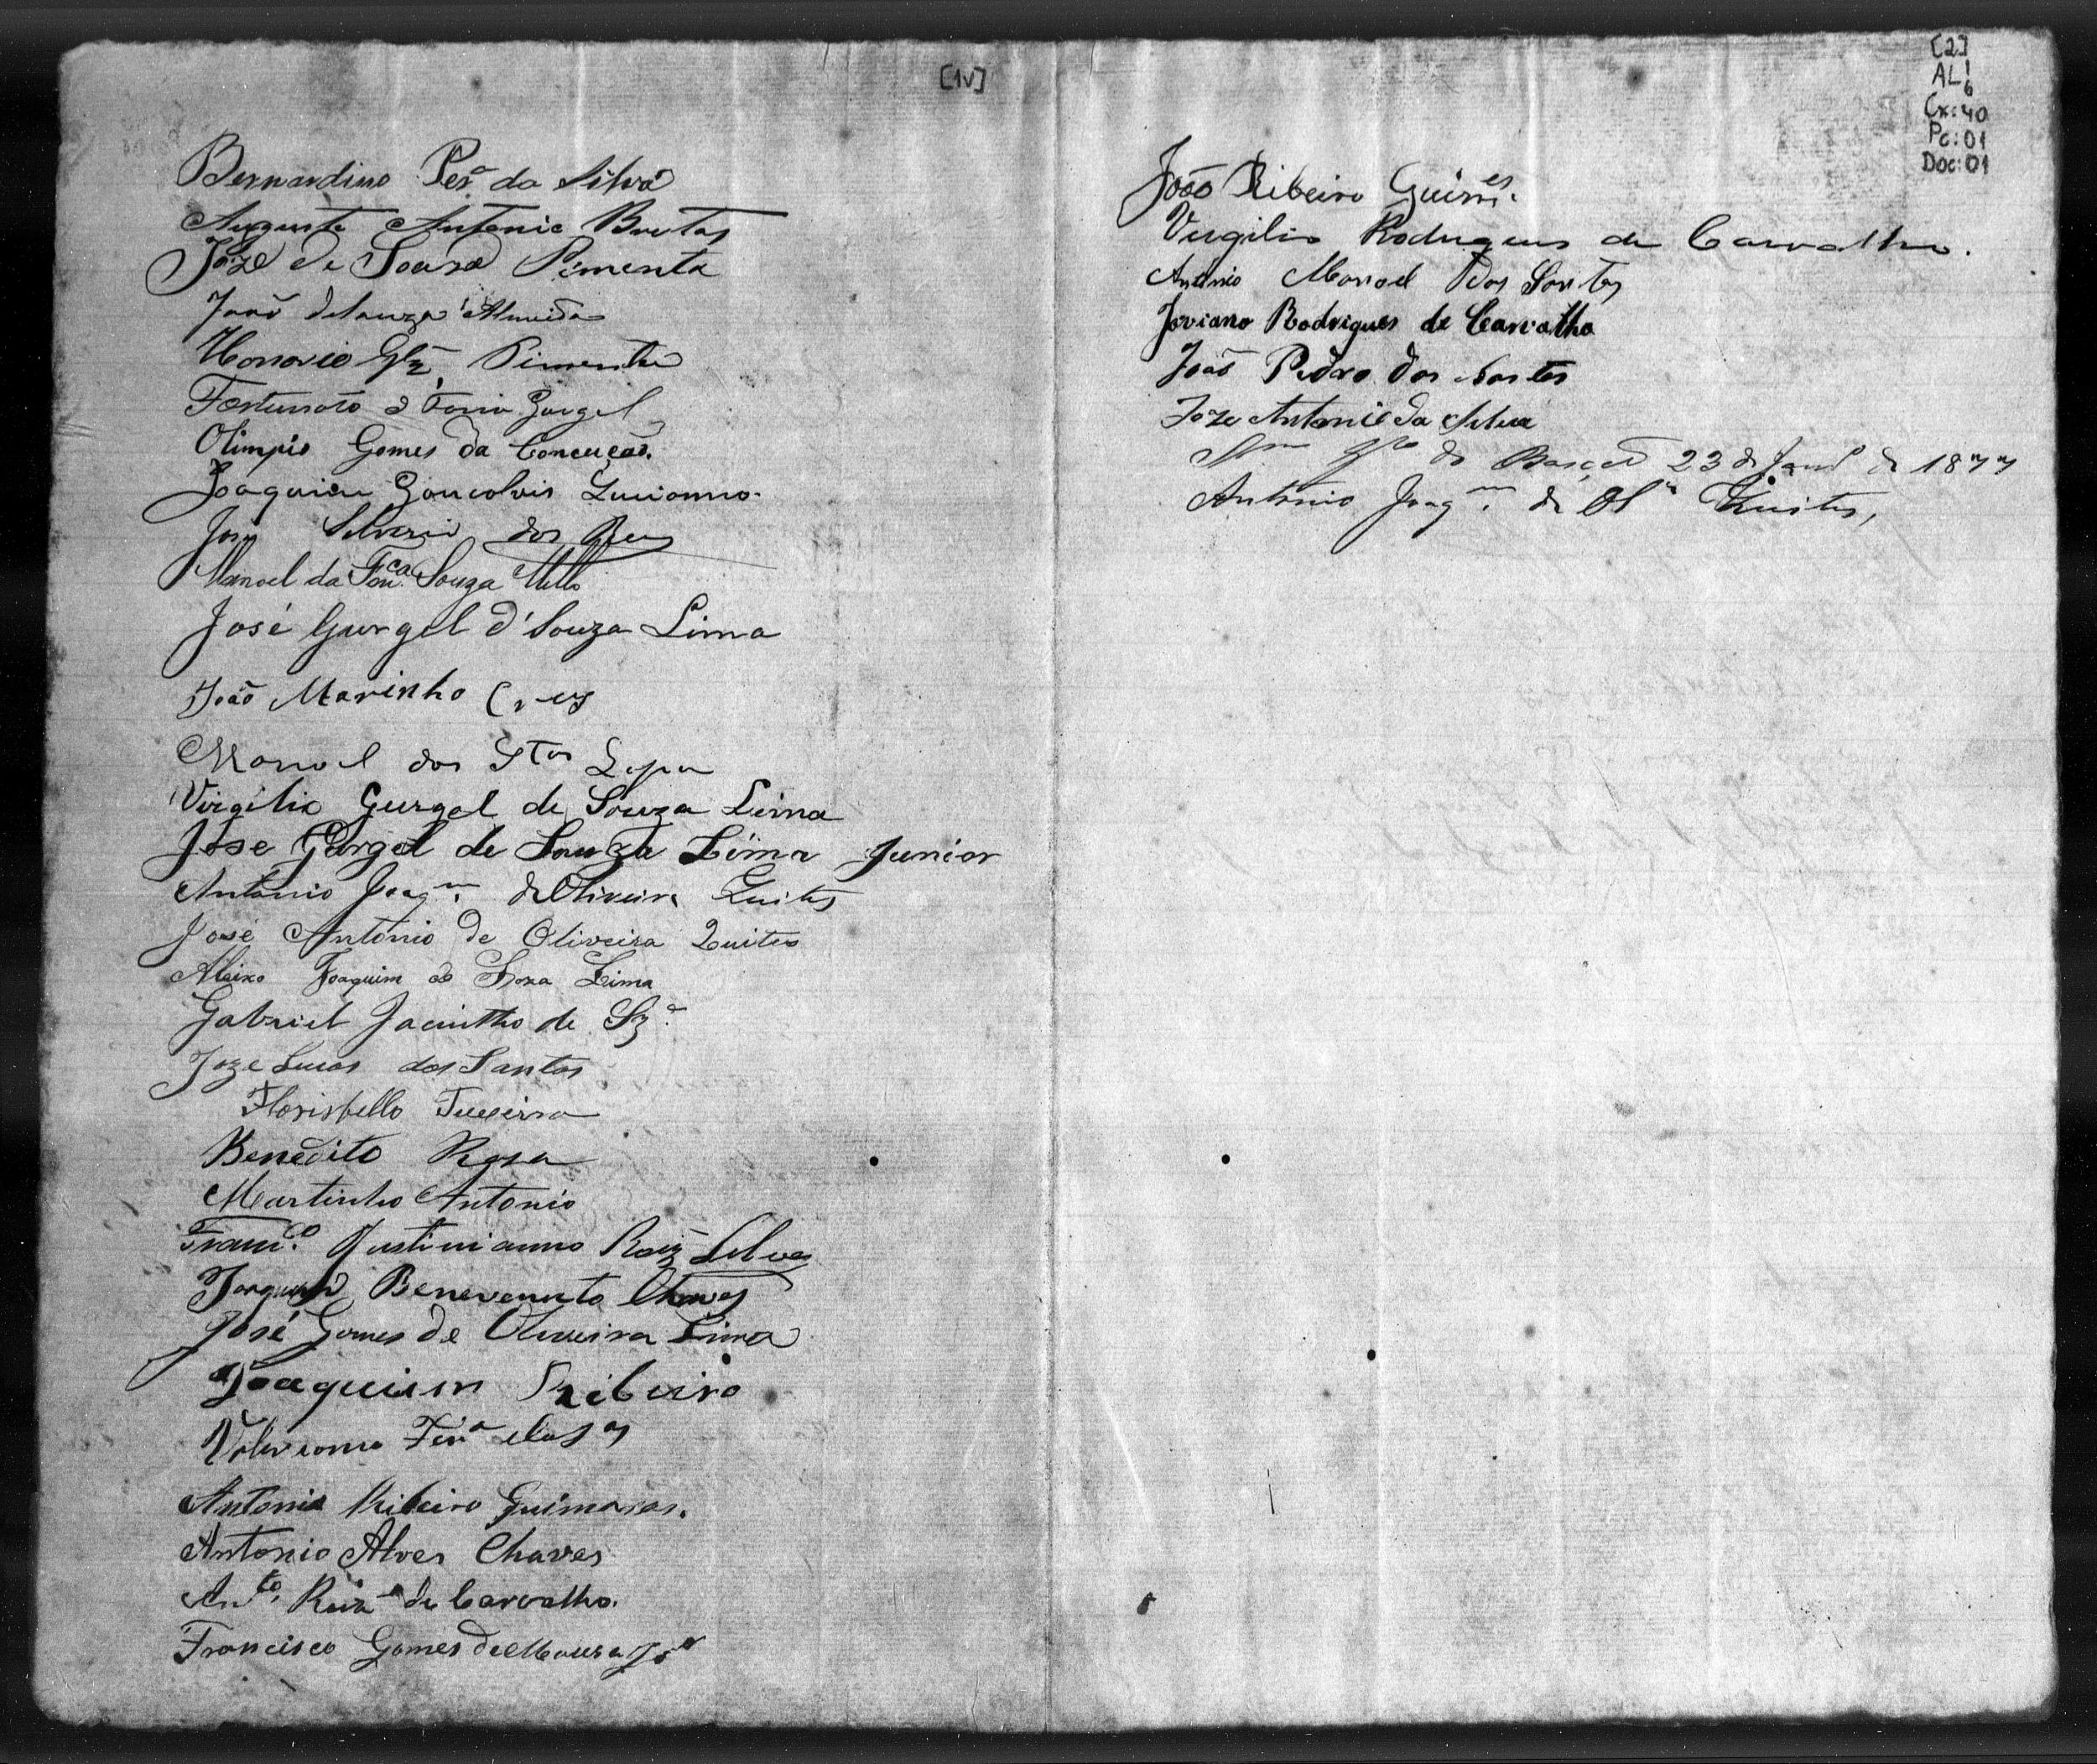 [1v]
Bernardino Per.ª da Silva
Augusto Antonio Brotas
Joze de Souza Pimenta
João de Souza Almeida
Honorio Glz Pimenta
Fortunato Gurgel
Olimpio Gomes da Conceição.
Joaquim Goncalves Lucianno.
Silverio dos Reis
Manoel da Fon.ca Souza Mello
José Gurgel d'Souza Lima
João Marinho
Manoel dos Stos
Virgilio Gurgel de Souza Lima
José Gurgel de Souza Lima Junior
Antonio Joaq.m de Oliveira Quites
José Antonio de Oliveira Quites
Aleixo Joaquim de Soza Lima
Gabriel Jacintho de Sz.ª
Joze Lucas dos Santos
Florisbello Teixeira
Benedito Rosa
Martinho Antonio
Franc.co Justinianno Roiz Silva
Joaquim Benevenuto Chaves
José Gomes de Oliveira Lima
Joaquim Ribeiro
Antonio Ribeiro Guimaraes.
Antonio Alves Chaves
An.to de Carvalho.
Francisco Gomes de Moura Jor
[2]
AL!
6
Cx:40
Pc:01
Doc:01
João Ribeiro Guim.es
Virgilio Rodrigues de Carvalho.
Antonio Manoel dos Santos
Joviano Rodrigues de Carvalho
João Pedro dos Santos
Joze Antonio da Silva
23 de Janr.o de 1877
Antonio Joaq.m de Ol.ra Quites,